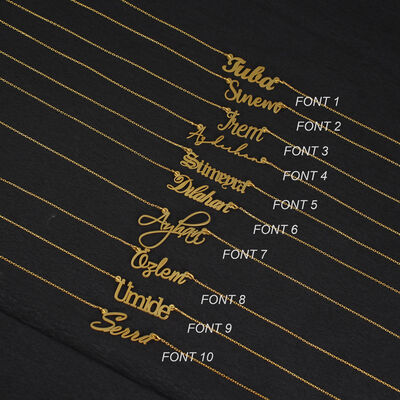 Tuba
Sinem
FONT 1
İrem
FONT 2
Ayderhan
FONT 3
FONT 4
Sümeyra
FONT 5
Dilahan
FONT 6
Ayhan
FONT 7
Özlem
FONT 8
Ümide
FONT 9
Serra
FONT 10